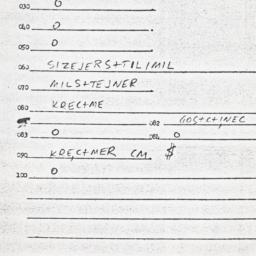 030 0
040 0
050 0
060 SIZEJERS+TILIMIL
070 MILS+EJNER
080 KREC+ME
082 GOS+C+INEC
083 0 084 0
090 KREC+MER CM $
100 0